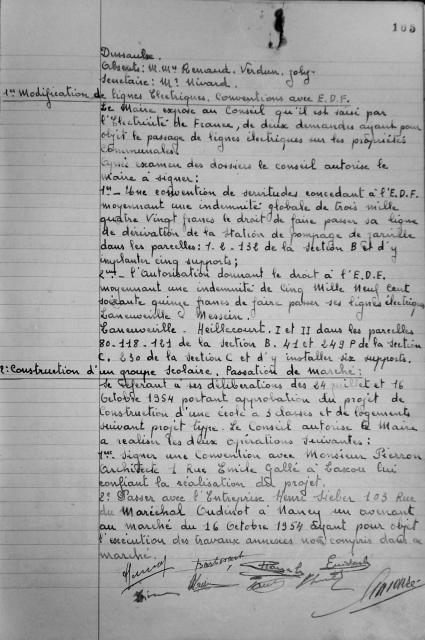 105
Dussaulx.
Absents: M.Mrs Renaud. Verdun. Joly.
Secrétaire: Mr Nivard.
1ent Modification de lignes Electriques. Conventions avec E.D.F.
Le Maire expose au Conseil qu'il est saisi par
l'Electricité de France, de deux demandes ayant pour
objet le passage de lignes électriques sur les propriétés
communales.
Après examen des dossiers le conseil autorise le
Maire à signer:
1ent- Une convention de servitudes concedant à l'E.D.F.
moyennant une indemnité globale de trois mille
quatre Vingt francs le droit de faire passer sa ligne
de dérivation de la station de pompage de Jarville
dans les parcelles: 1. 2 - 132 de la section B et d'y
implanter cinq supports;
2ent- l'Autorisation donnant le droit à l'E.D.F.
moyennant une indemnité de Cinq Mille Neuf Cent
soixante quinze francs de faire passer ses lignes électriques
Laneuveville - Messein.
Laneuveville - Heillecourt. I et II dans les parcelles
80-118-121 de la section B. 41 et 249 P de la section
C. 230 de la section C et d'y installer six supports.
2: Construction d'un groupe scolaire. Passation de marché:
Se référant à ses délibérations des 24 juillet et 16
Octobre 1954 portant approbation du projet de
Construction d'une école à 3 classes et de logements
suivant projet type. Le Conseil autorise le Maire
a réaliser les deux opérations suivantes:
1ent signer une Convention avec Monsieur Pierron
Architecte 1 Rue Emile Gallé à Laxou lui
confiant la réalisation du projet.
2: Passer avec l'Entreprise Henri Sieber 103 Rue
du Maréchal Oudinot à Nancy un avenant
au marché du 16 Octobre 1954 ayant pour objet
l'exécution des travaux annexes non compris dans ce
marché.